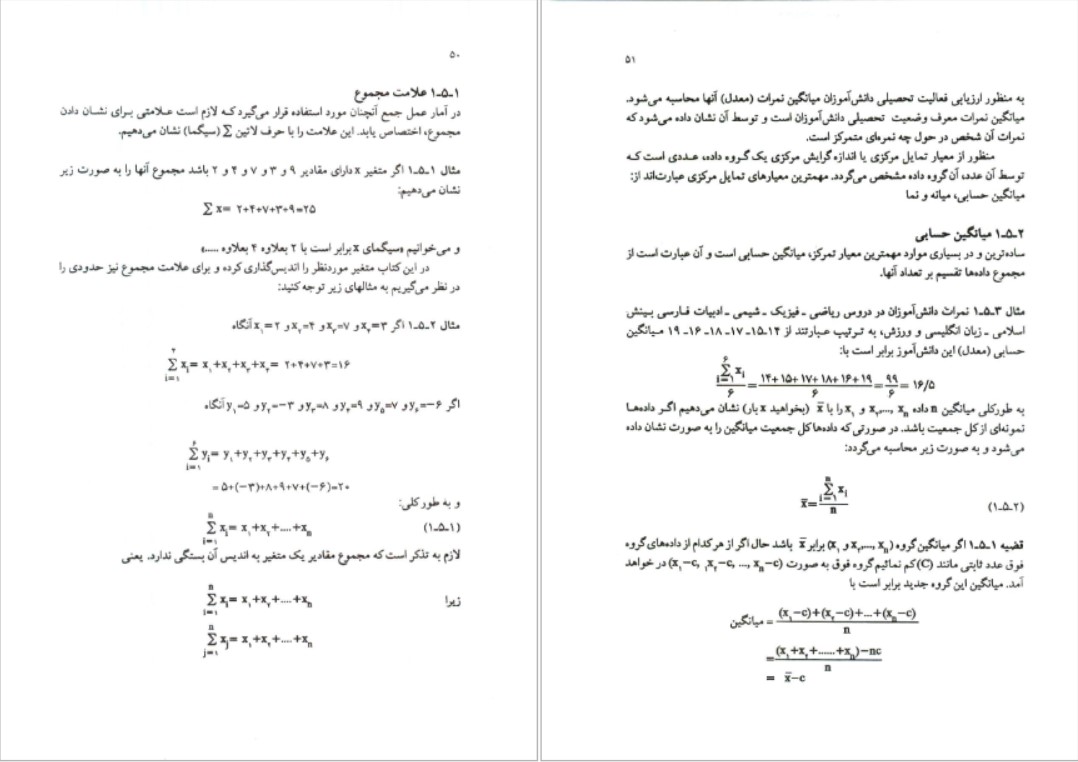 ۵۰
۱ـ۵ـ۱ علامت مجموع
در آمار عمل جمع آنچنان مورد استفاده قرار می‌گیرد که لازم است علامتی برای نشان دادن
مجموع، اختصاص یابد. این علامت را با حرف لاتین ∑ (سیگما) نشان می‌دهیم.
مثال ۱ـ۵ـ۱ اگر متغیر x دارای مقادیر ۹ و ۳ و ۷ و ۴ و ۲ باشد مجموع آنها را به صورت زیر
نشان می‌دهیم:
∑ x= ۲+۴+۷+۳+۹=۲۵
و می‌خوانیم «سیگمای x برابر است با ۲ بعلاوه ۴ بعلاوه .....»
در این کتاب متغیر موردنظر را اندیس‌گذاری کرده و برای علامت مجموع نیز حدودی را
در نظر می‌گیریم به مثالهای زیر توجه کنید:
مثال ۲ـ۵ـ۱ اگر x₄=۳ و x₃=۷ و x₂=۴ و x₁=۲ آنگاه
۴
∑ xᵢ= x₁+x₂+x₃+x₄= ۲+۴+۷+۳=۱۶
i=۱
اگر y₆=−۶ و y₅=۷ و y₄=۹ و y₃=۸ و y₂=−۳ و y₁=۵ آنگاه
۶
∑ yᵢ= y₁+y₂+y₃+y₄+y₅+y₆
i=۱
= ۵+(−۳)+۸+۹+۷+(−۶)=۲۰
و به طورکلی:
n
∑ xᵢ= x₁+x₂+....+xₙ (۱ـ۵ـ۱)
i=۱
لازم به تذکر است که مجموع مقادیر یک متغیر به اندیس آن بستگی ندارد. یعنی
n
∑ xᵢ= x₁+x₂+....+xₙ زیرا
i=۱
n
∑ xⱼ= x₁+x₂+....+xₙ
j=۱
۵۱
به منظور ارزیابی فعالیت تحصیلی دانش‌آموزان میانگین نمرات (معدل) آنها محاسبه می‌شود.
میانگین نمرات معرف وضعیت تحصیلی دانش‌آموزان است و توسط آن نشان داده می‌شود که
نمرات آن شخص در حول چه نمره‌ای متمرکز است.
منظور از معیار تمایل مرکزی یا اندازه گرایش مرکزی یک گروه داده، عددی است که
توسط آن عدد، آن گروه داده مشخص می‌گردد. مهمترین معیارهای تمایل مرکزی عبارت‌اند از:
میانگین حسابی، میانه و نما
۲ـ۵ـ۱ میانگین حسابی
ساده‌ترین و در بسیاری موارد مهمترین معیار تمرکز، میانگین حسابی است و آن عبارت است از
مجموع داده‌ها تقسیم بر تعداد آنها.
مثال ۳ـ۵ـ۱ نمرات دانش‌آموزان در دروس ریاضی ـ فیزیک ـ شیمی ـ ادبیات فارسی بینش
اسلامی ـ زبان انگلیسی و ورزش، به ترتیب عبارتند از ۱۴ـ۱۵ـ۱۷ـ۱۸ـ۱۶ـ۱۹ میانگین
حسابی (معدل) این دانش‌آموز برابر است با:
۶
∑ xᵢ
i=۱
۱۴+۱۵+۱۷+۱۸+۱۶+۱۹ ۹۹
= = = ۱۶/۵
۶ ۶ ۶
به طورکلی میانگین n داده xₙ ,...,x₂ و x₁ را با x̄ (بخواهید x بار) نشان می‌دهیم اگر داده‌ها
نمونه‌ای از کل جمعیت باشد. در صورتی که داده‌ها کل جمعیت میانگین را به صورت نشان داده
می‌شود و به صورت زیر محاسبه می‌گردد:
n
∑ xᵢ
x̄= i=۱ (۱ـ۵ـ۲)
n
قضیه ۱ـ۵ـ۱ اگر میانگین گروه (xₙ ,...,x₂ و x₁) برابر x̄ باشد حال اگر از هرکدام از داده‌های گروه
فوق عدد ثابتی مانند (C) کم نمائیم گروه فوق به صورت (x₁−c, x₂−c, ..., xₙ−c) در خواهد
آمد. میانگین این گروه جدید برابر است با
(x₁−c)+(x₂−c)+...+(xₙ−c)
= میانگین
n
(x₁+x₂+......+xₙ)−nc
=
n
= x̄−c